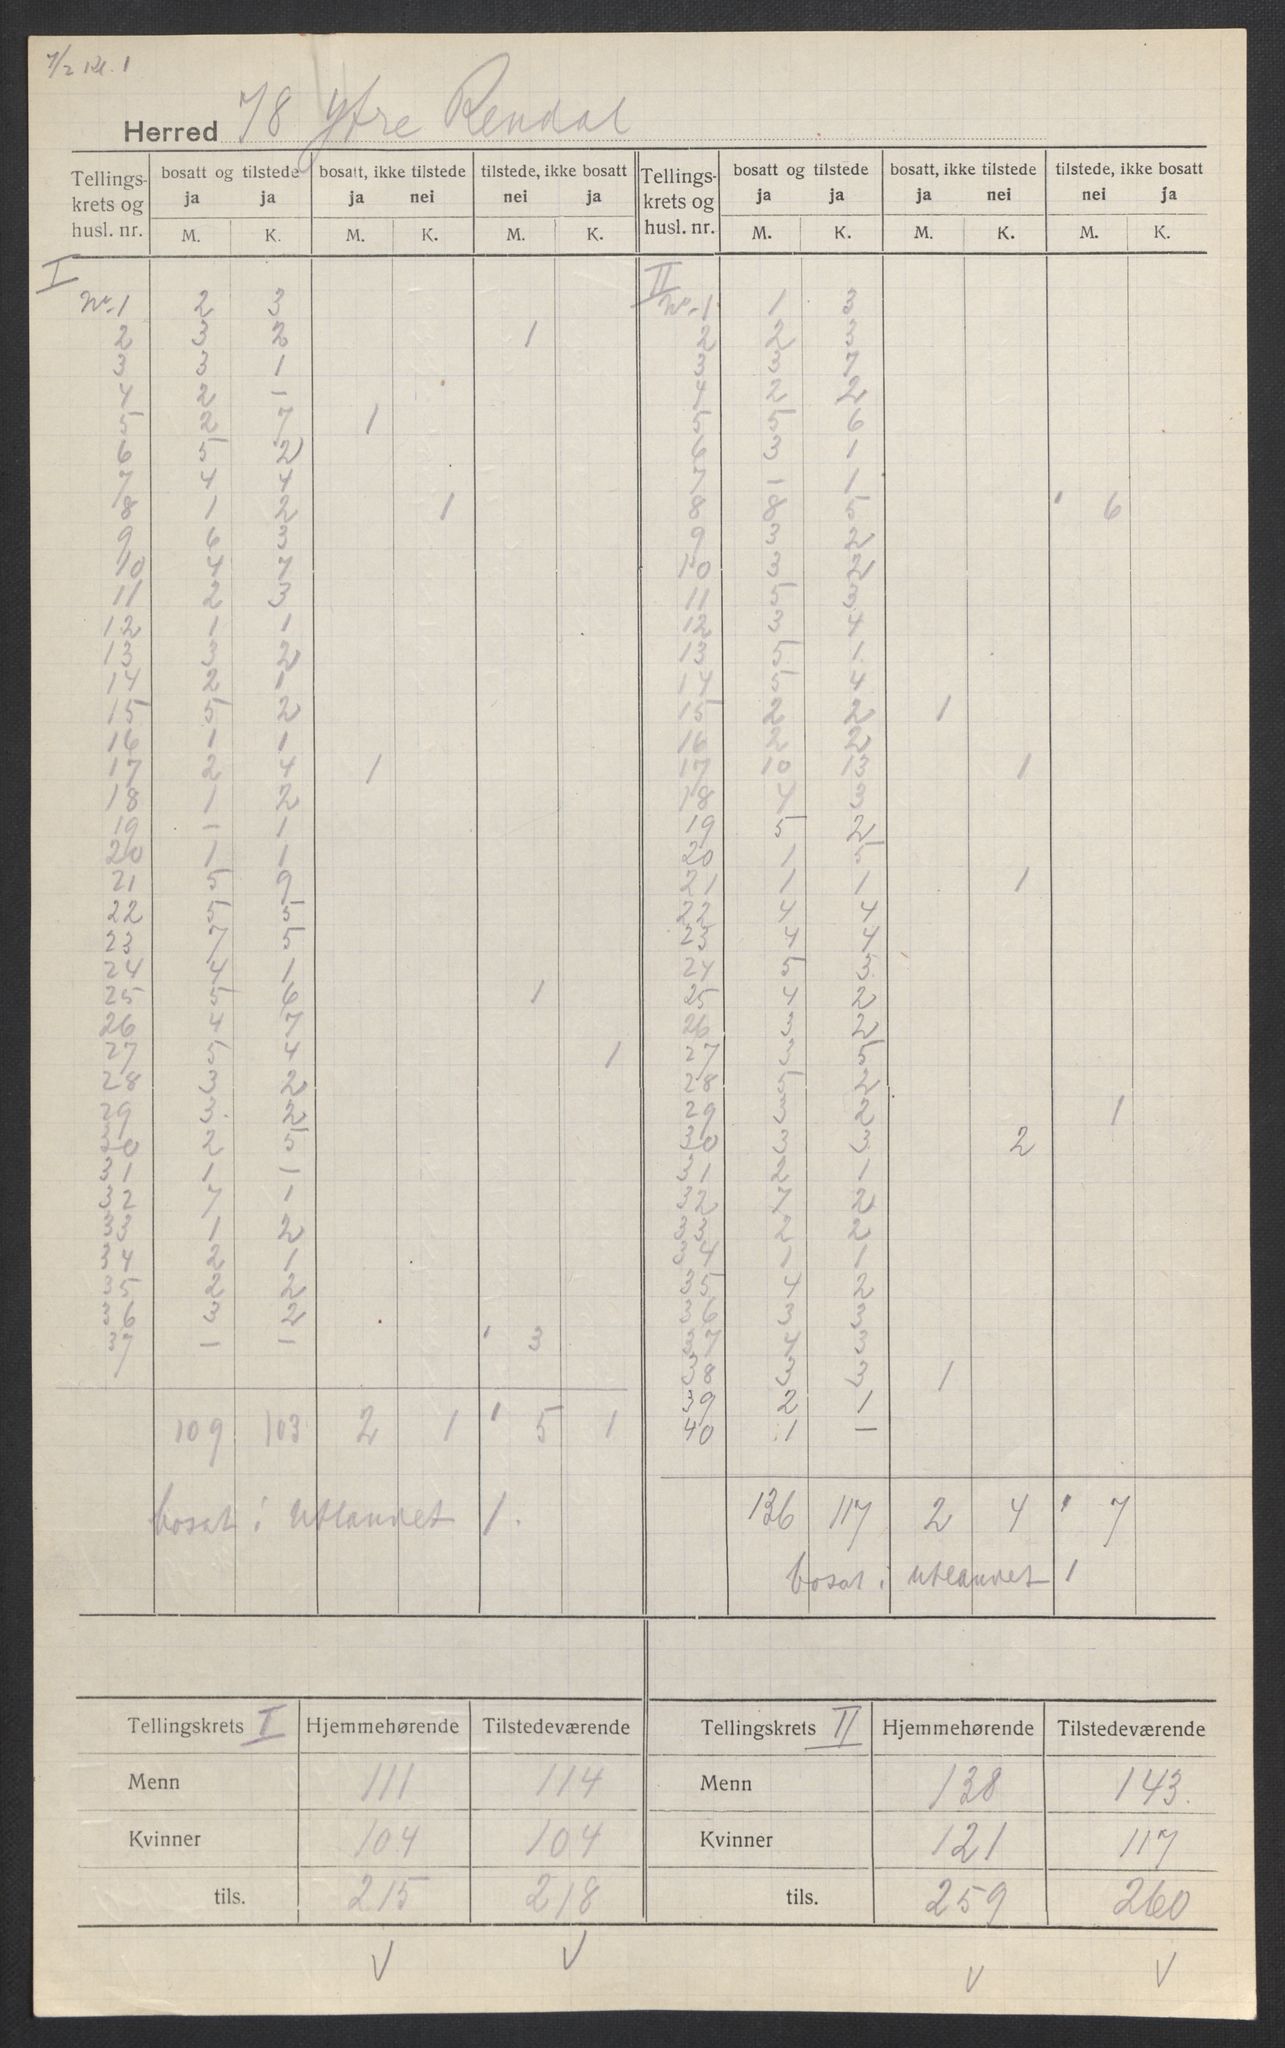 7/2 kl. 1
Herred 78 Ytre Rendal
Tellings-krets og husl. nr. | bosatt og tilstede ja ja | bosatt, ikke tilstede ja nei | tilstede, ikke bosatt nei ja | Tellings-krets og husl. nr. | bosatt og tilstede ja ja | bosatt, ikke tilstede ja nei | tilstede, ikke bosatt nei ja
M. K. M. K. M. K. M. K. M. K. M. K.
I II
Nr. 1 2 3 Nr. 1 1 3
2 3 2 1 2 2 3
3 3 1 3 3 7
4 2 – 4 2 2
5 2 7 1 5 5 6
6 5 2 6 3 1
7 4 4 7 1 1
8 1 2 1 8 8 5 6
9 6 3 9 3 2
10 4 7 10 3 2
11 2 3 11 5 3
12 1 1 12 3 4
13 3 2 13 5 1
14 2 1 14 5 4
15 5 2 15 2 2 1
16 1 1 16 2 2
17 2 4 1 17 10 13 1
18 1 2 18 4 3
19 – 1 19 5 2
20 1 1 20 1 5
21 5 9 21 1 1 1
22 5 5 22 4 4
23 7 5 23 4 4
24 4 1 24 5 3
25 5 6 1 25 4 2
26 4 7 26 3 2
27 5 4 1 27 3 5
28 3 2 28 5 2
29 3 2 29 3 2 1
30 2 5 30 3 3 2
31 1 – 31 2 1
32 7 1 32 7 2
33 1 2 33 2 2
34 2 1 34 1 1
35 2 2 35 4 2
36 3 2 36 3 3
37 – – 3 37 4 3
38 3 3 1
39 2 1
40 1 –
109 103 2 1 5 1
136 117 2 4 7
bosat i utlandet 1.
bosat i utlandet 1
Tellingskrets I Hjemmehørende Tilstedeværende Tellingskrets II Hjemmehørende Tilstedeværende
Menn 111 114 Menn 138 143.
Kvinner 104 104 Kvinner 121 117
tils. 215 218 tils. 259 260